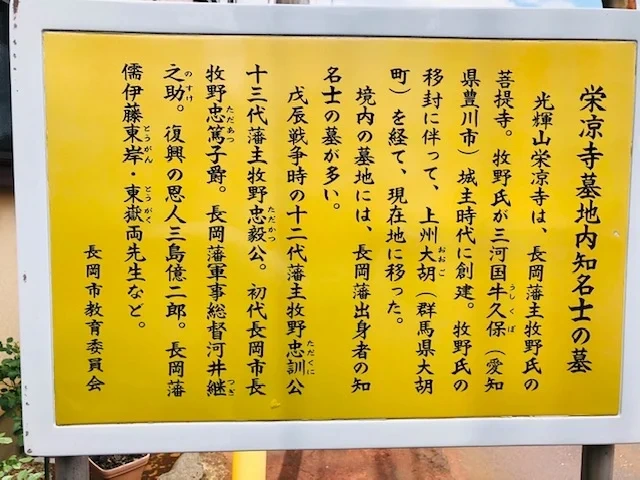 栄凉寺墓地内知名士の墓
光輝山栄凉寺は、長岡藩主牧野氏の
うしくぼ
菩提寺。牧野氏が三河国牛久保（愛知
県豊川市）城主時代に創建。牧野氏の
おおご
移封に伴って、上州大胡（群馬県大胡
町）を経て、現在地に移った。
境内の墓地には、長岡藩出身者の知
名士の墓が多い。
ただくに
戊辰戦争時の十二代藩主牧野忠訓公
ただかつ
十三代藩主牧野忠毅公。初代長岡市長
ただあつ つぎ
牧野忠篤子爵。長岡藩軍事総督河井継
のすけ
之助。復興の恩人三島億二郎。長岡藩
とうがん とうがく
儒伊藤東岸・東嶽両先生など。
長岡市教育委員会